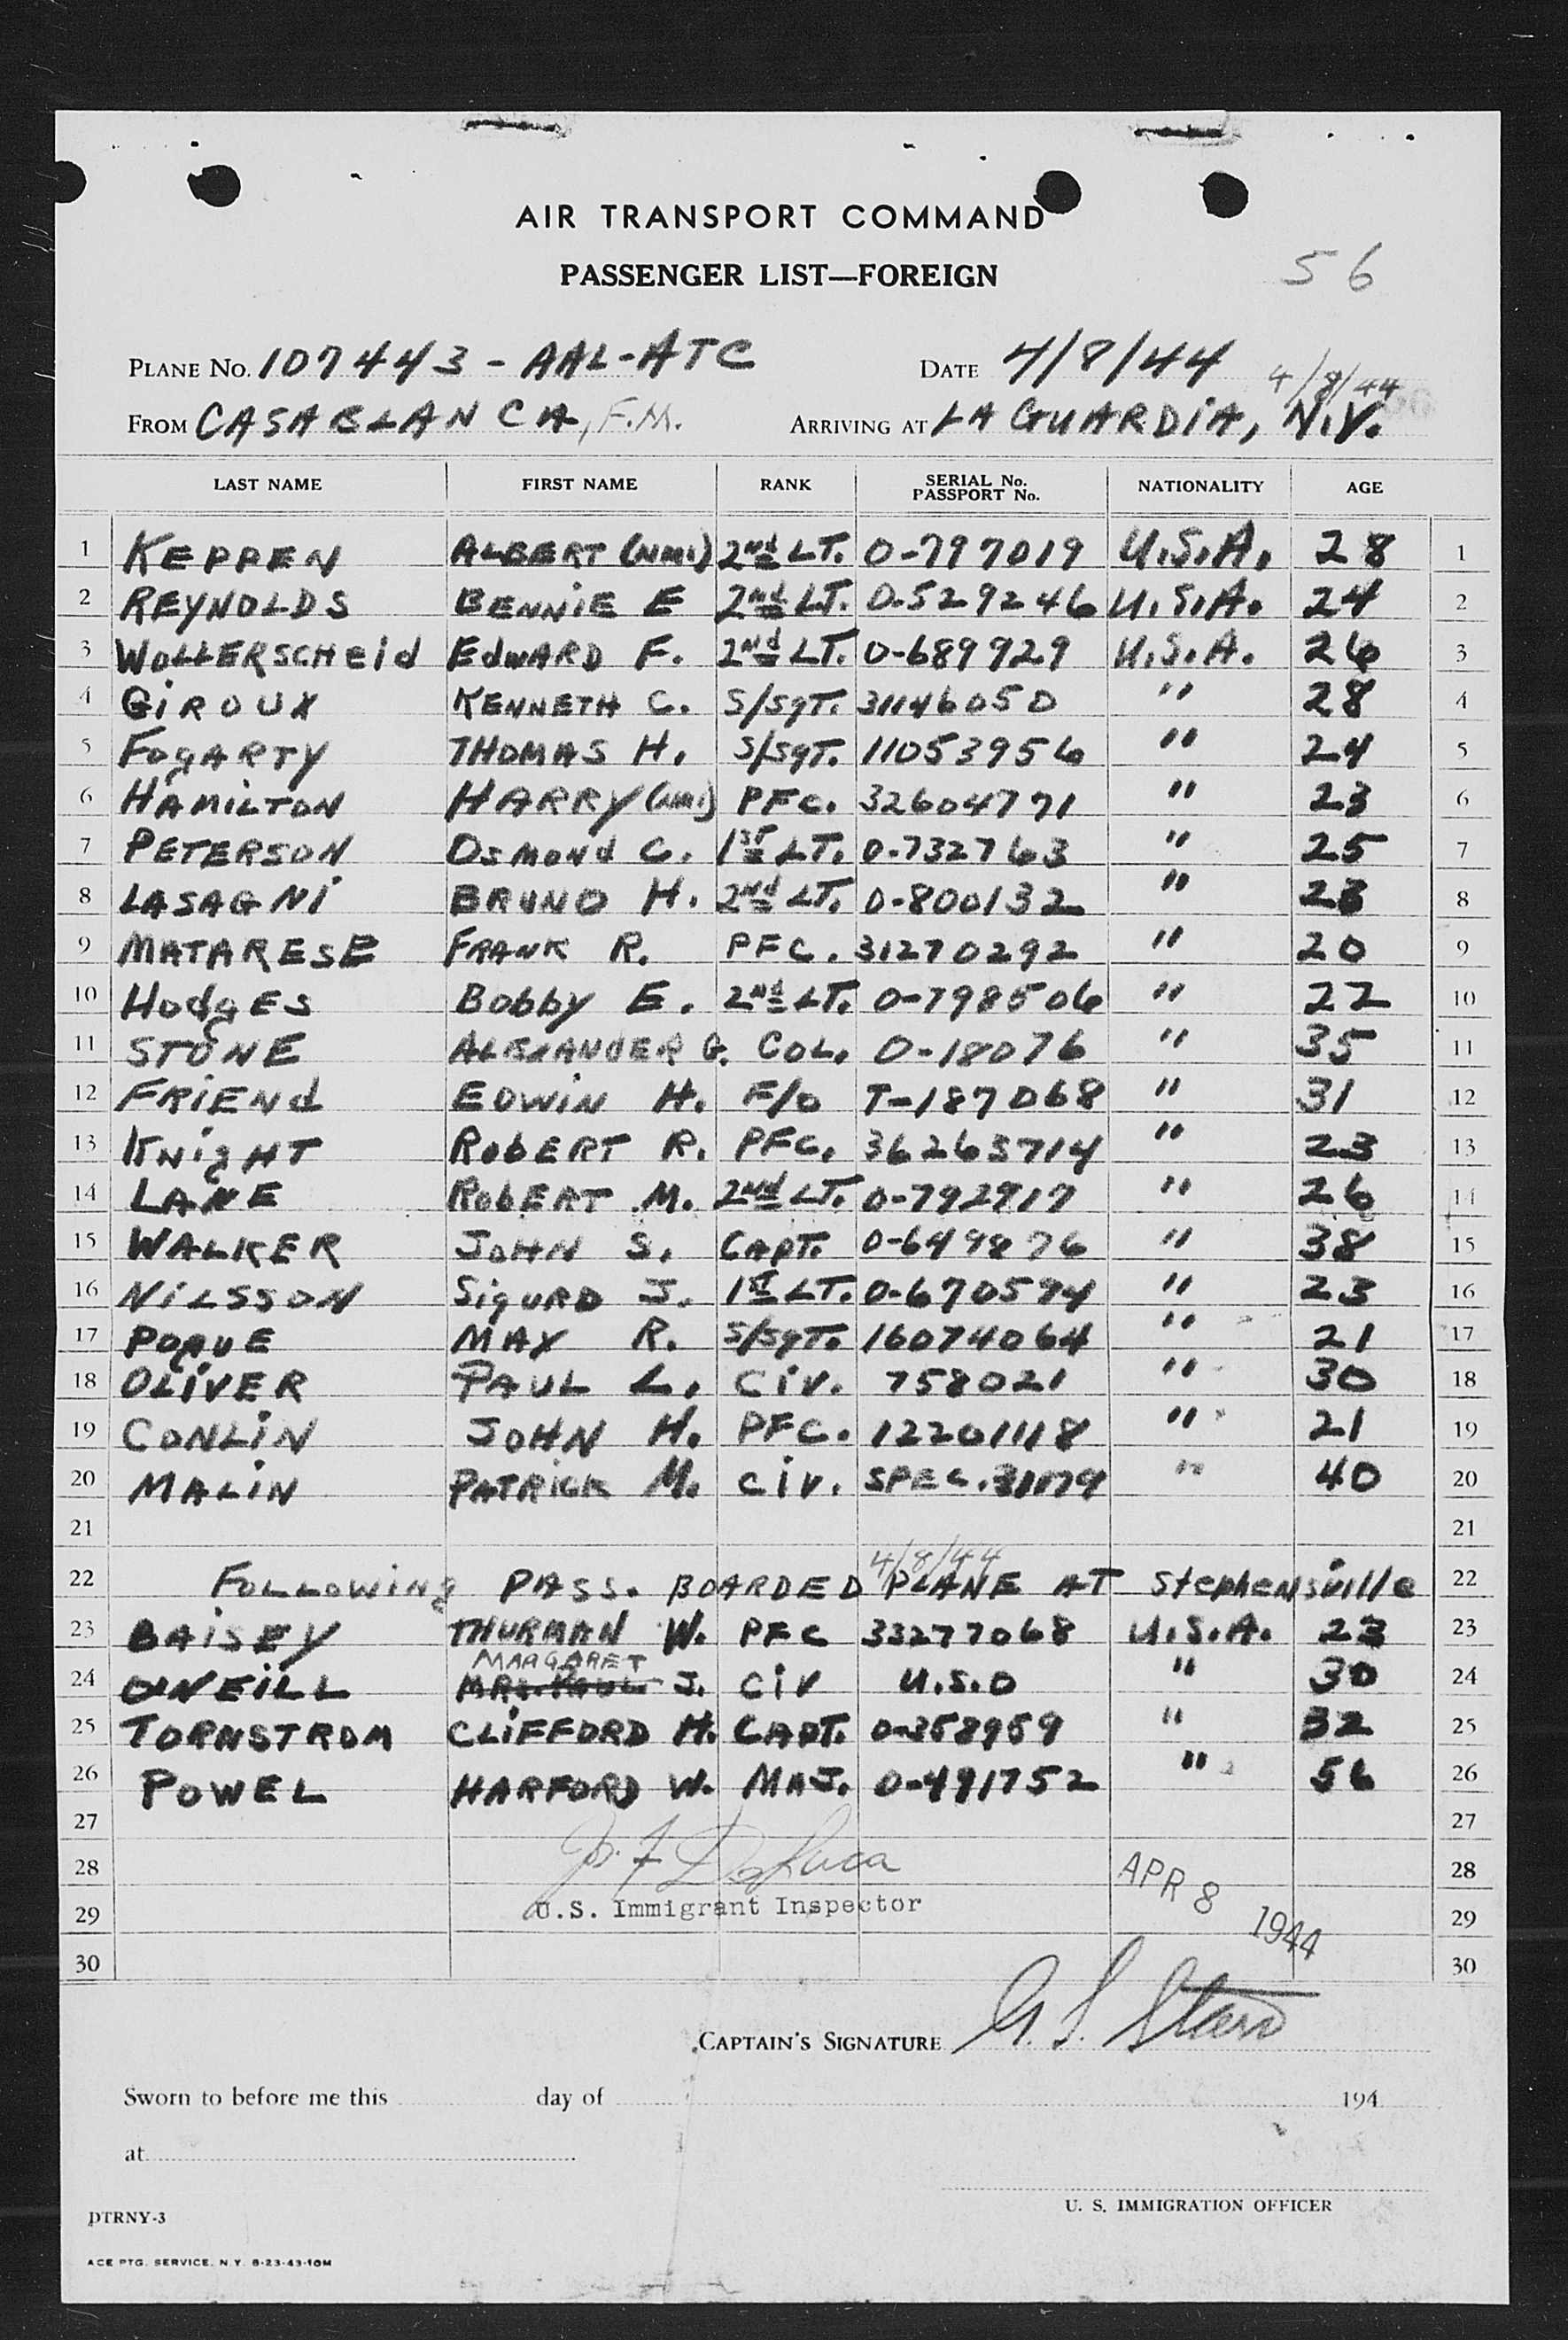 AIR TRANSPORT COMMAND
PASSENGER LIST—FOREIGN
56
PLANE No. 107443 - AAL-ATC DATE 4/8/44
4/8/44
FROM CASABLANCA, F.M. ARRIVING AT LA GUARDIA, N.Y.
LAST NAME FIRST NAME RANK SERIAL No. PASSPORT No. NATIONALITY AGE
1 KEPPEN ALBERT (NMI) 2nd LT. O-797019 U.S.A. 28 1
2 REYNOLDS BENNIE E 2nd LT. O-529246 U.S.A. 24 2
3 WOLLERSCHEID EDWARD F. 2nd LT. O-689929 U.S.A. 26 3
4 GIROUX KENNETH C. S/SGT. 31146050 " 28 4
5 FOGARTY THOMAS H. S/SGT. 11053956 " 24 5
6 HAMILTON HARRY (NMI) PFC. 32604771 " 23 6
7 PETERSON OSMOND C. 1st LT. O-732763 " 25 7
8 LASAGNI BRUNO H. 2nd LT. O-800132 " 23 8
9 MATARESE FRANK R. PFC. 31270292 " 20 9
10 HODGES BOBBY E. 2nd LT. O-798506 " 22 10
11 STONE ALEXANDER G. COL. O-18076 " 35 11
12 FRIEND EDWIN H. F/O T-187068 " 31 12
13 KNIGHT ROBERT R. PFC. 36265714 " 23 13
14 LANE ROBERT M. 2nd LT. O-792917 " 26 14
15 WALKER JOHN S. CAPT. O-649876 " 38 15
16 NILSSON SIGURD J. 1st LT. O-670594 " 23 16
17 POGUE MAX R. S/SGT. 16074064 " 21 17
18 OLIVER PAUL L. CIV. 758021 " 30 18
19 CONLIN JOHN H. PFC. 12201118 " 21 19
20 MALIN PATRICK M. CIV. SPEC. " 40 20
21 21
4/8/44
22 FOLLOWING PASS. BOARDED PLANE AT Stephensville 22
23 BAISEY THURMAN W. PFC 33277068 U.S.A. 23 23
MARGARET
24 O'NEILL J. CIV U.S.O " 30 24
25 TORNSTROM CLIFFORD H. CAPT. O-358959 " 32 25
26 POWEL HARFORD W. MAJ. O-491752 " 56 26
27 27
28 APR 8 1944 28
29 U.S. Immigrant Inspector 29
30 30
CAPTAIN'S SIGNATURE
Sworn to before me this day of 194
at
U. S. IMMIGRATION OFFICER
DTRNY-3
ACE PTG. SERVICE, N.Y. 8-23-43-10M